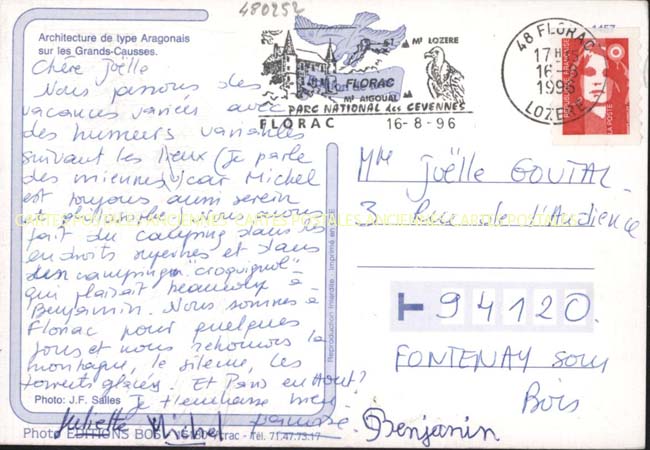 480252
Architecture de type Aragonais
sur les Grands-Causses.
Chère Joëlle
Nous passons des
vacances variées avec
des humeurs variables
suivant les lieux (Je parle
des miennes !) car Michel
est toujours aussi serein
Nous avons
fait du camping dans les
endroits superbes et dans
des campings "croquignol"
qui plaisait beaucoup à
Benjamin. Nous sommes à
Florac pour quelques
jours et nous retrouvons la
montagne, le silence, les
torrents glacés. Et Paris en Août ?
Photo: J.F. Salles
Je t'embrasse
Juliette Michel
Benjamin
Photo EDITIONS BOS
Tél. 71.47.73.17
Reproduction Interdite - Imprimé en CEE
CARTES POSTALES ANCIENNES CARTES POSTALES ANCIENNES CARTES POSTALES
Mt LOZERE
FLORAC
Mt AIGOUAL
PARC NATIONAL des CEVENNES
FLORAC 16-8-96
48 FLORAC
17 H
16-8
1996
LOZERE
LA POSTE
Mme Joëlle GOUTAL
3 Rue de l'Audience
94120
FONTENAY sous
Bois